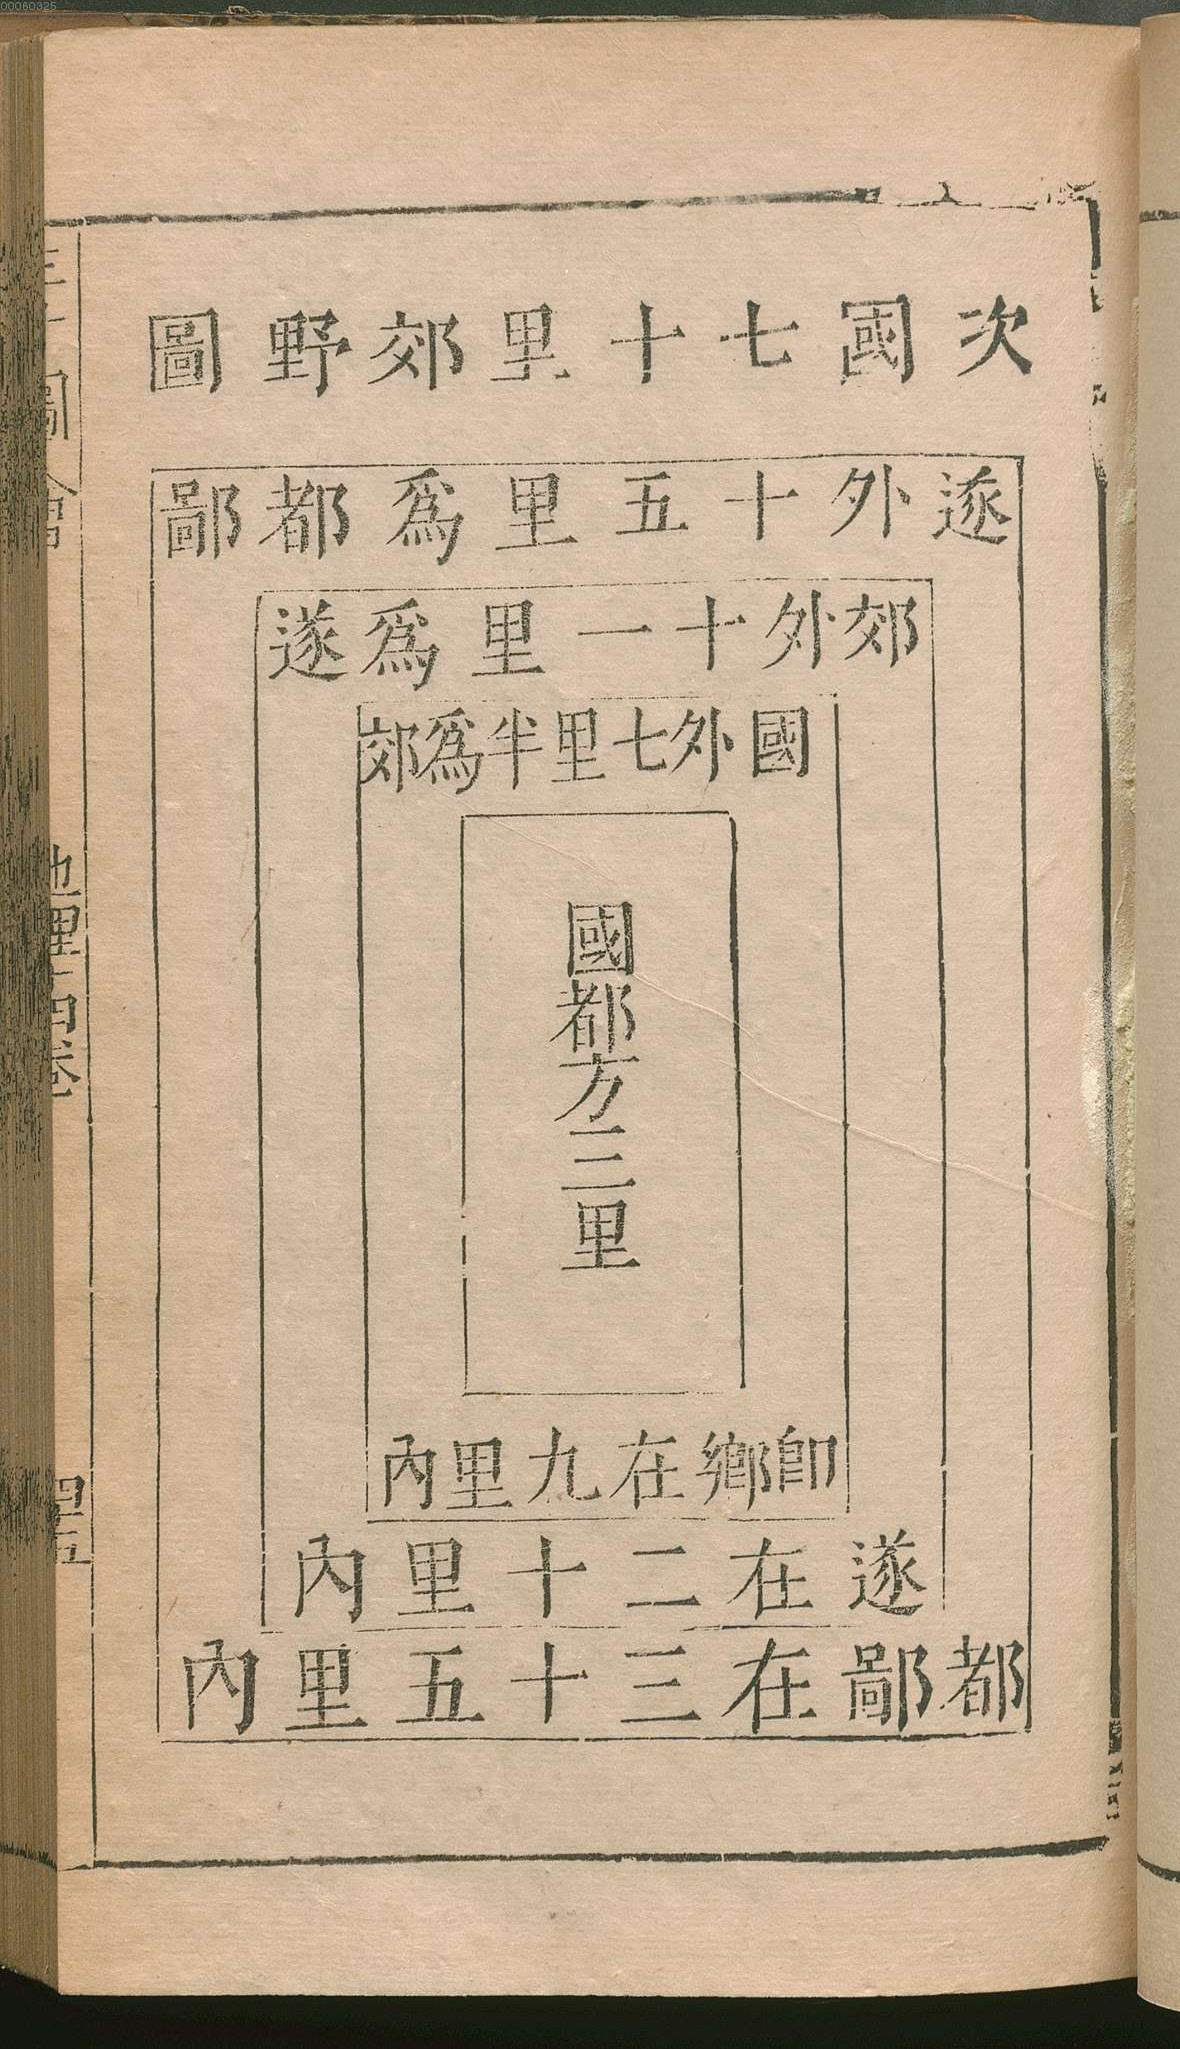 00060325
次國七十里郊野圖
遂外十五里爲都鄙
郊外十一里爲遂
國外七里半爲郊
國都方三里
卽鄉在九里內
遂在二十里內
都鄙在三十五里內
圖會
地理十四卷
四五